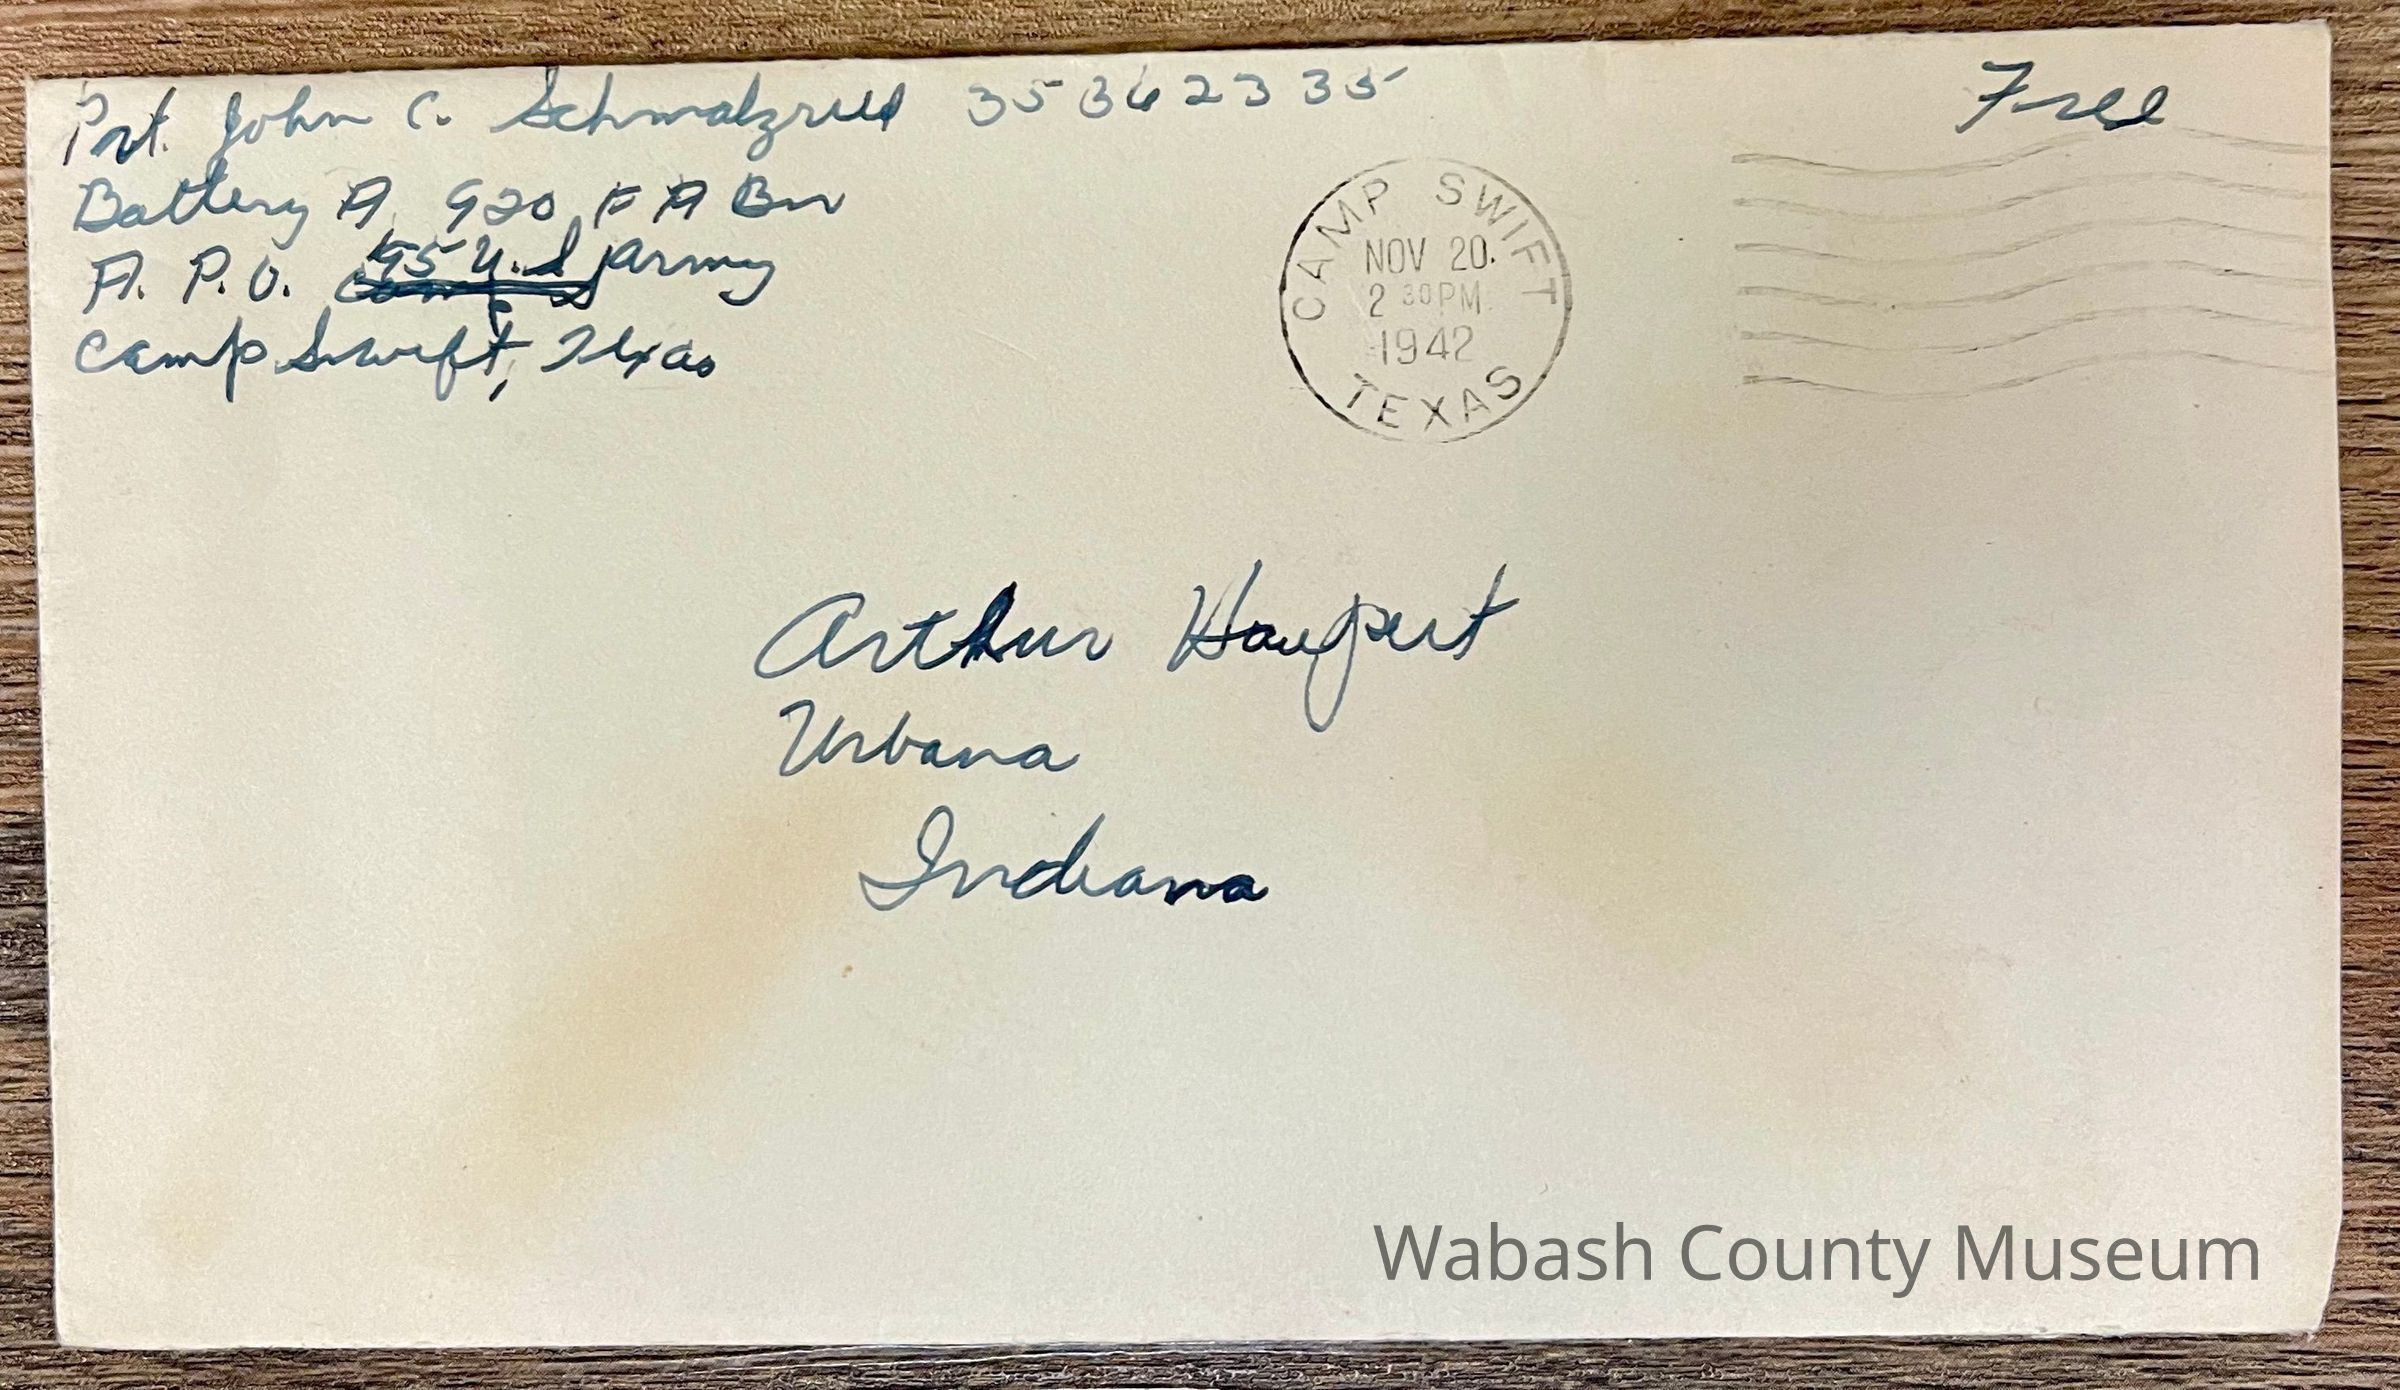 Pvt. John C. Schmalzried 35362335
Battery A 920 F A Bn
A. P.O. 95 U.S Army
Camp Swift, Texas
Free
CAMP SWIFT
NOV 20.
2 30 PM
1942
TEXAS
Arthur Haupert
Urbana
Indiana
Wabash County Museum